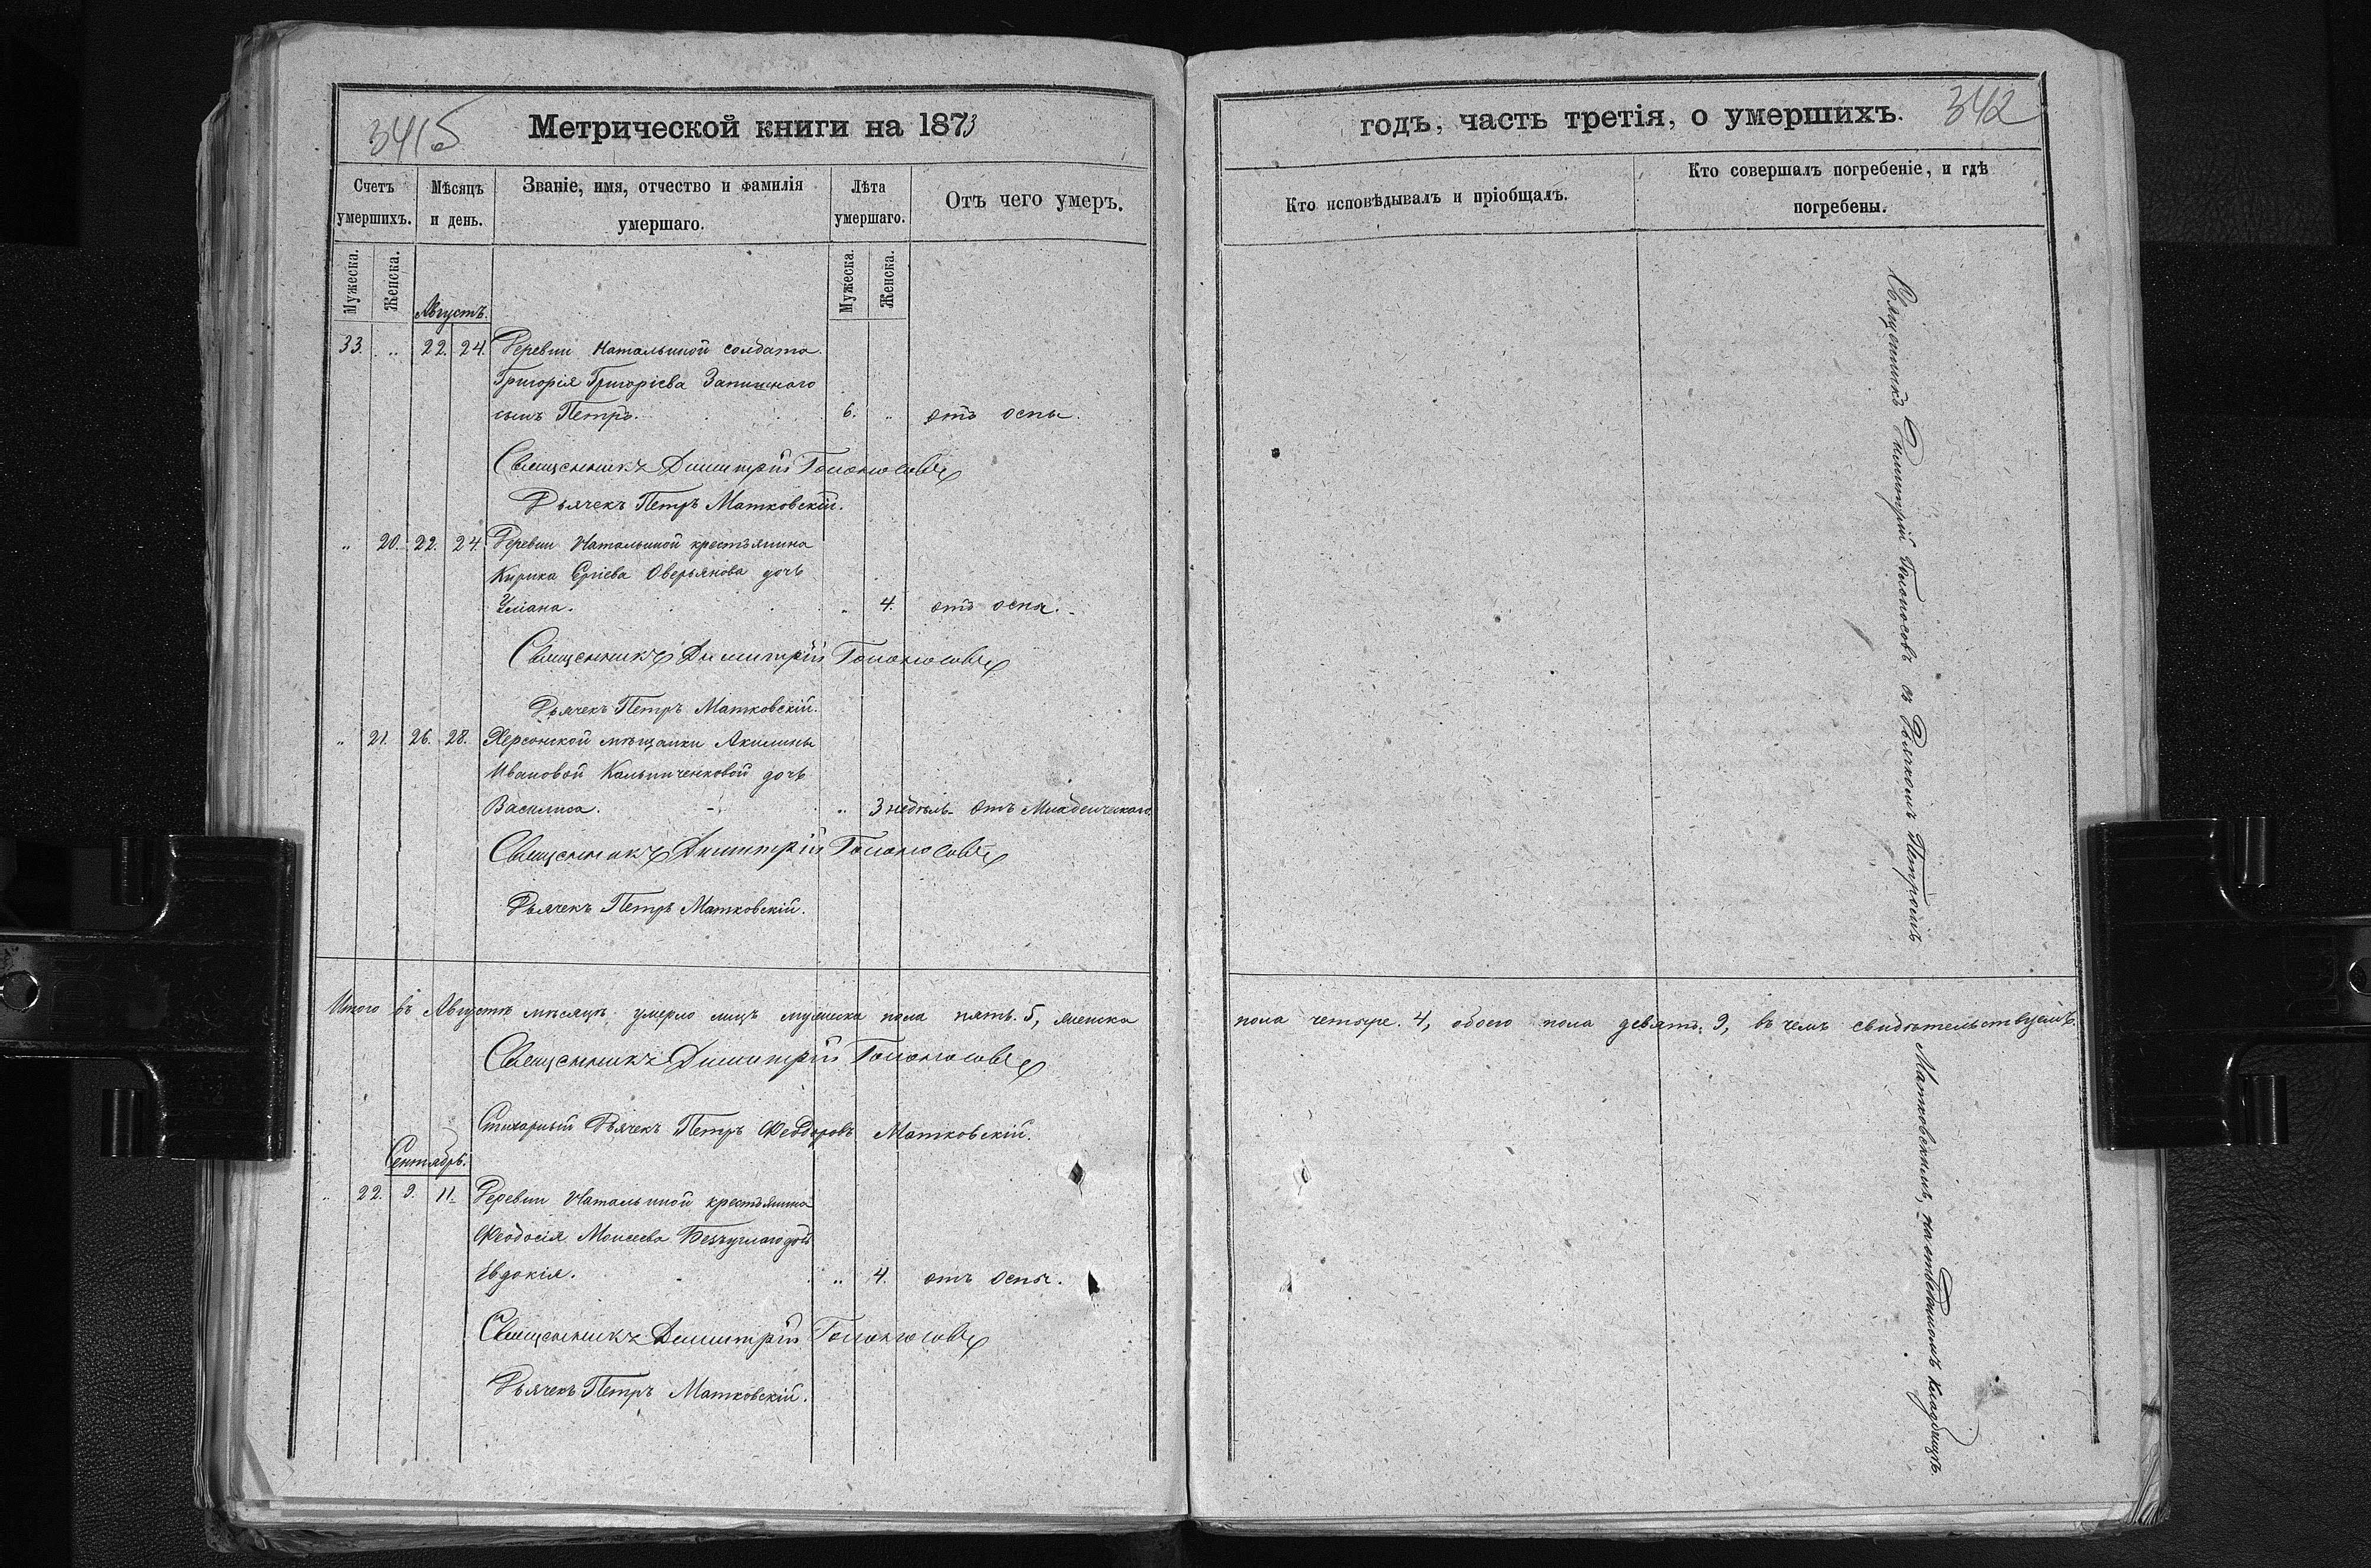 341б
Метрической книги на 1873
Счетъ умершихъ.
Мѣсяцъ и день.
Званіе, имя, отчество и фамилія умершаго.
Лѣта умершаго.
Отъ чего умеръ.
Мужеска. Женска.
Мужеска. Женска.
Августъ.
33. „ 22. 24. Деревни Натальиной солдата
Григорія Григоріева
сынъ Петръ. 6. „ отъ оспы.
Священникъ Димитрій Голоносовъ
Дьячекъ Петръ Матковскій.
„ 20. 22. 24. Деревни Натальиной крестьянина
Кирика Оверьянова дочь
„ 4. отъ оспы.
Священникъ Димитрій Голоносовъ
Дьячекъ Петръ Матковскій.
„ 21. 26. 28. Херсонской мѣщанки Акилины
Ивановой Кальниченковой дочь
Василиса. „ 3 недѣль. отъ Младенческаго.
Священникъ Димитрій Голоносовъ
Дьячекъ Петръ Матковскій.
Итого въ Августѣ мѣсяцѣ умерло лицъ мужеска пола пять. 5, женска
Священникъ Димитрій Голоносовъ
Стихарный Дьячекъ Петръ Феодоровъ Матковскій.
Сентябрь.
„ 22. 9. 11. Деревни Натальиной крестьянина
Феодосія Моисеева Безуглаго дочь
Евдокія. „ 4. отъ оспы.
Священникъ Димитрій Голоносовъ
Дьячекъ Петръ Матковскій.
годъ, часть третія, о умершихъ.
342
Кто исповѣдывалъ и пріобщалъ.
Кто совершалъ погребеніе, и гдѣ погребены.
Священникъ Димитрій Голоносовъ съ Дьячкомъ Петромъ
пола четыре. 4, обоего пола девять. 9, въ чемъ свидѣтельствуемъ.
Матковскимъ, на отведенномъ кладбищѣ.